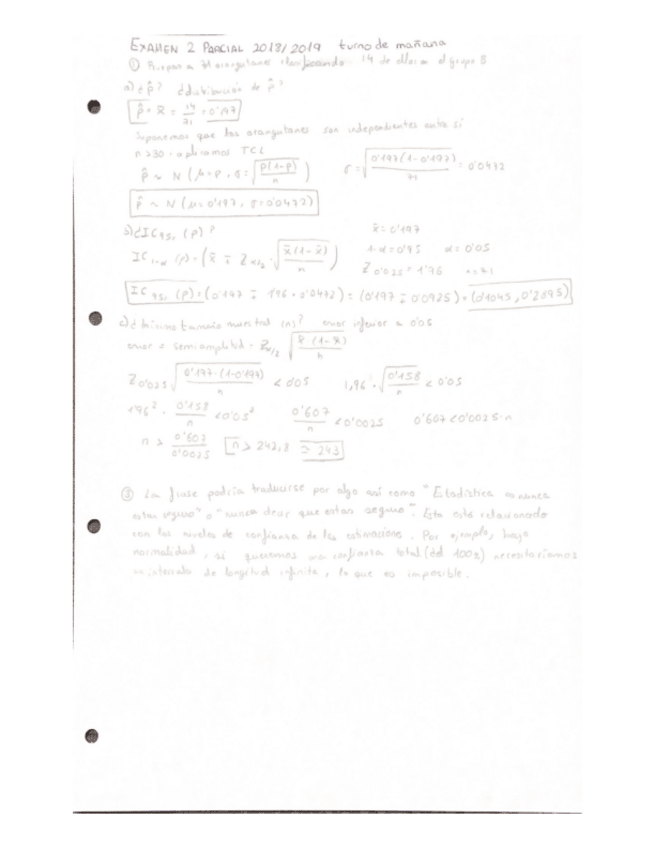 EXAMEN 2 PARCIAL 2018/2019 turno de mañana
① 71 orangutanes 14 de ellos en el grupo B
a) ¿p̂? ¿distribución de p̂?
p̂ = x̄ = 14/71 = 0'197
Suponemos que los orangutanes son independientes entre sí
n>30 → aplicamos TCL
p̂ ~ N (μ=p, σ=√(p(1-p)/n)) σ = √(0'197(1-0'197)/71) = 0'0472
p̂ ~ N (μ=0'197, σ=0'0472)
b) ¿IC95% (p)? x̄ = 0'197
1-α=0'95 α=0'05
IC1-α (p) = (x̄ ∓ Zα/2 · √(x̄(1-x̄)/n)) Z0'025 = 1'96 n=71
IC95% (p) = (0'197 ∓ 1'96 · 0'0472) = (0'197 ∓ 0'0925) = (0'1045, 0'2895)
c) ¿Mínimo tamaño muestral (n)? error inferior a 0'05
error = semiamplitud = Zα/2 √(x̄·(1-x̄)/n)
Z0'025 √(0'197·(1-0'197)/n) < 0'05 1,96 · √(0'158/n) < 0'05
1'96² · 0'158/n < 0'05² 0'607/n < 0'0025 0'607 < 0'0025·n
n > 0'607/0'0025 n > 242,8 ≃ 243
③ La frase podría traducirse por algo así como "Estadística es nunca
estar seguro" o "nunca decir que estás seguro". Esto está relacionado
con los niveles de confianza de las estimaciones. Por ejemplo, bajo
normalidad, si queremos una confianza total (del 100%) necesitaríamos
un intervalo de longitud infinita, lo que es imposible.